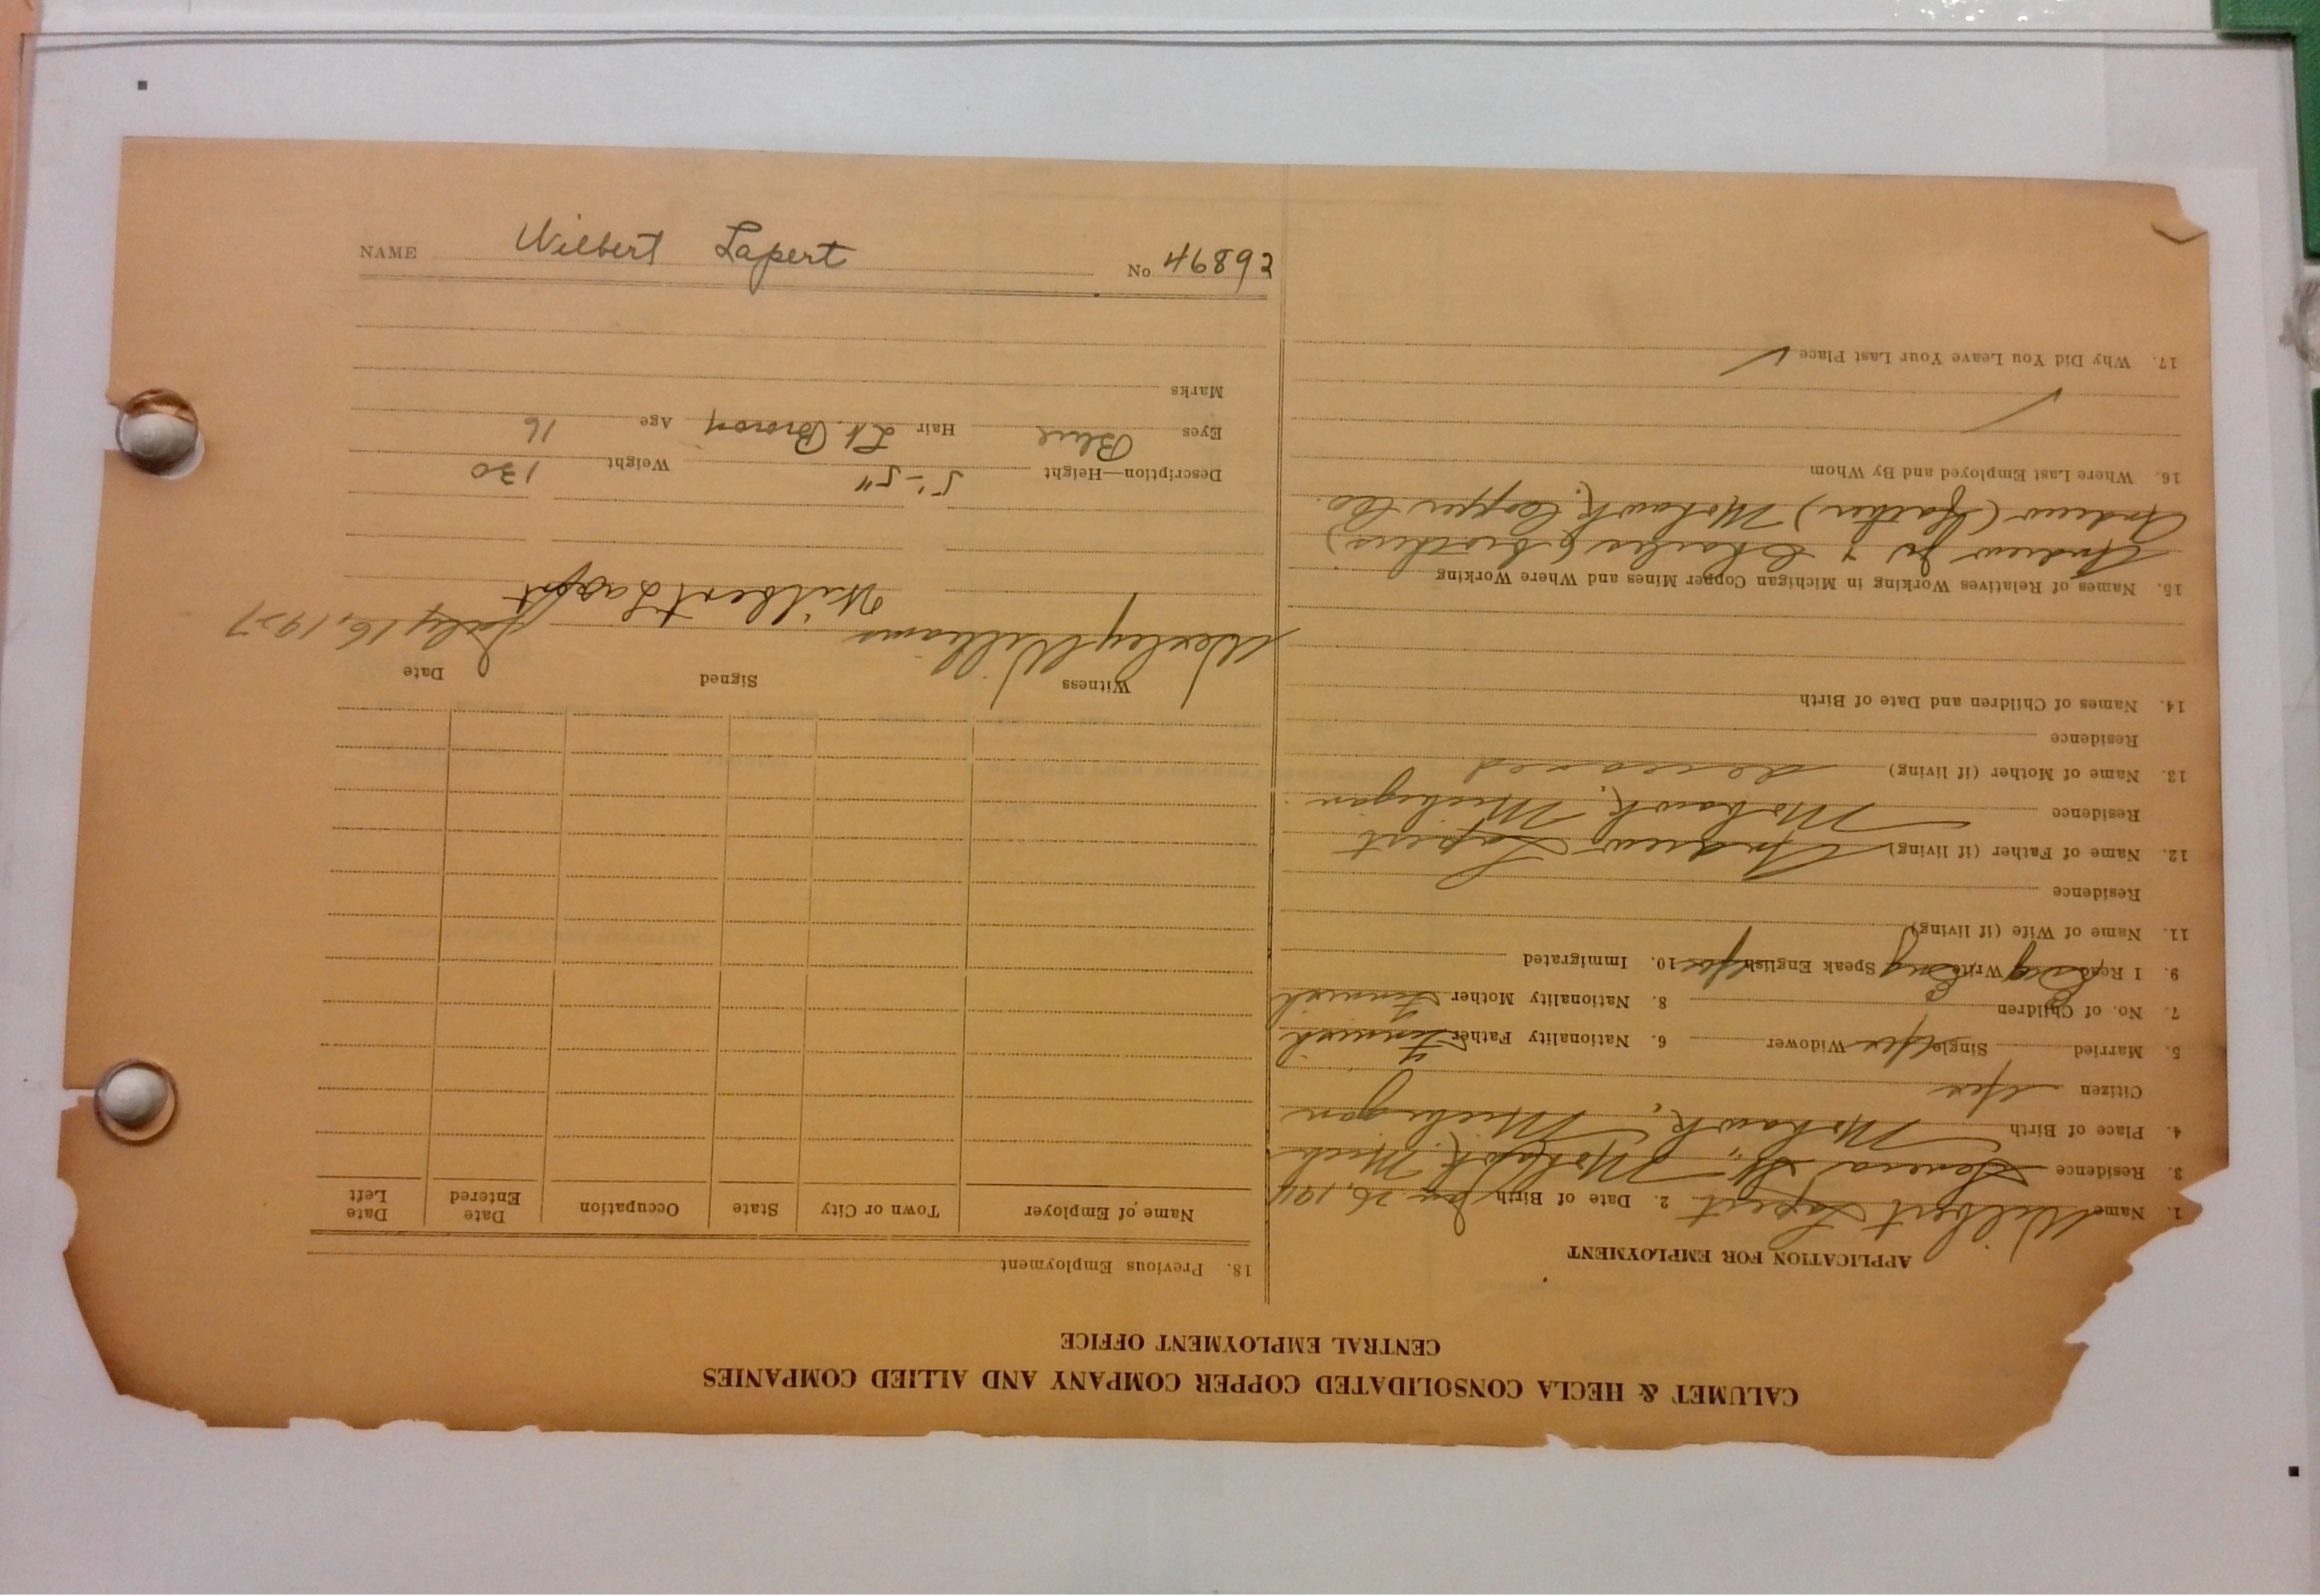 CALUMET & HECLA CONSOLIDATED COPPER COMPANY AND ALLIED COMPANIES
CENTRAL EMPLOYMENT OFFICE
APPLICATION FOR EMPLOYMENT
1. Name Wilbert Lapert 2. Date of Birth Jan 26, 1911
3. Residence Seneca Mohawk, Mich
4. Place of Birth Mohawk, Michigan
Citizen Yes
5. Married Single Yes Widower 6. Nationality Father Finnish
7. No. of Children 8. Nationality Mother Finnish
9. I Read Eng Write Eng Speak English Yes 10. Immigrated
11. Name of Wife (if living)
Residence
12. Name of Father (if living) Andrew Lapert
Residence Mohawk, Michigan
13. Name of Mother (if living) deceased
Residence
14. Names of Children and Date of Birth
15. Names of Relatives Working in Michigan Copper Mines and Where Working
Andrew Jr & Charles (brothers)
Andrew (father) Mohawk Copper Co.
16. Where Last Employed and By Whom
17. Why Did You Leave Your Last Place
18. Previous Employment
Name of Employer Town or City State Occupation Date Entered Date Left
Witness Signed Date
Wesley Williams Wilbert Lapert July 16, 1927
Description—Height 5'-5" Weight 130
Eyes Blue Hair Lt. Brown Age 16
Marks
NAME Wilbert Lapert No 46892